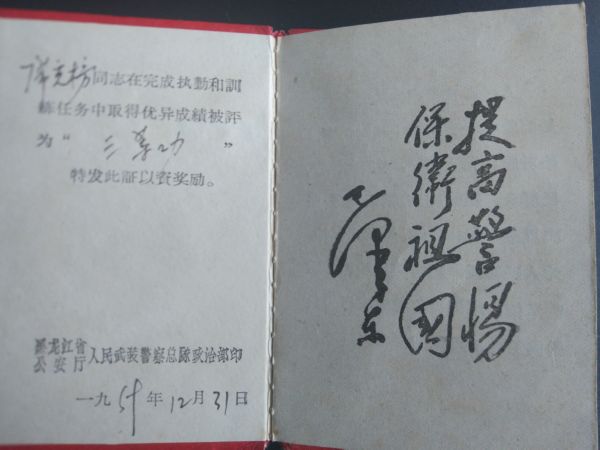 同志在完成执勤和訓
练任务中取得优异成績被評
为“三等功”
特发此証以資奖励。
黑龙江省
公安厅人民武装警察总隊政治部印
一九59年12月31日
提高警惕
保衛祖國
毛澤东